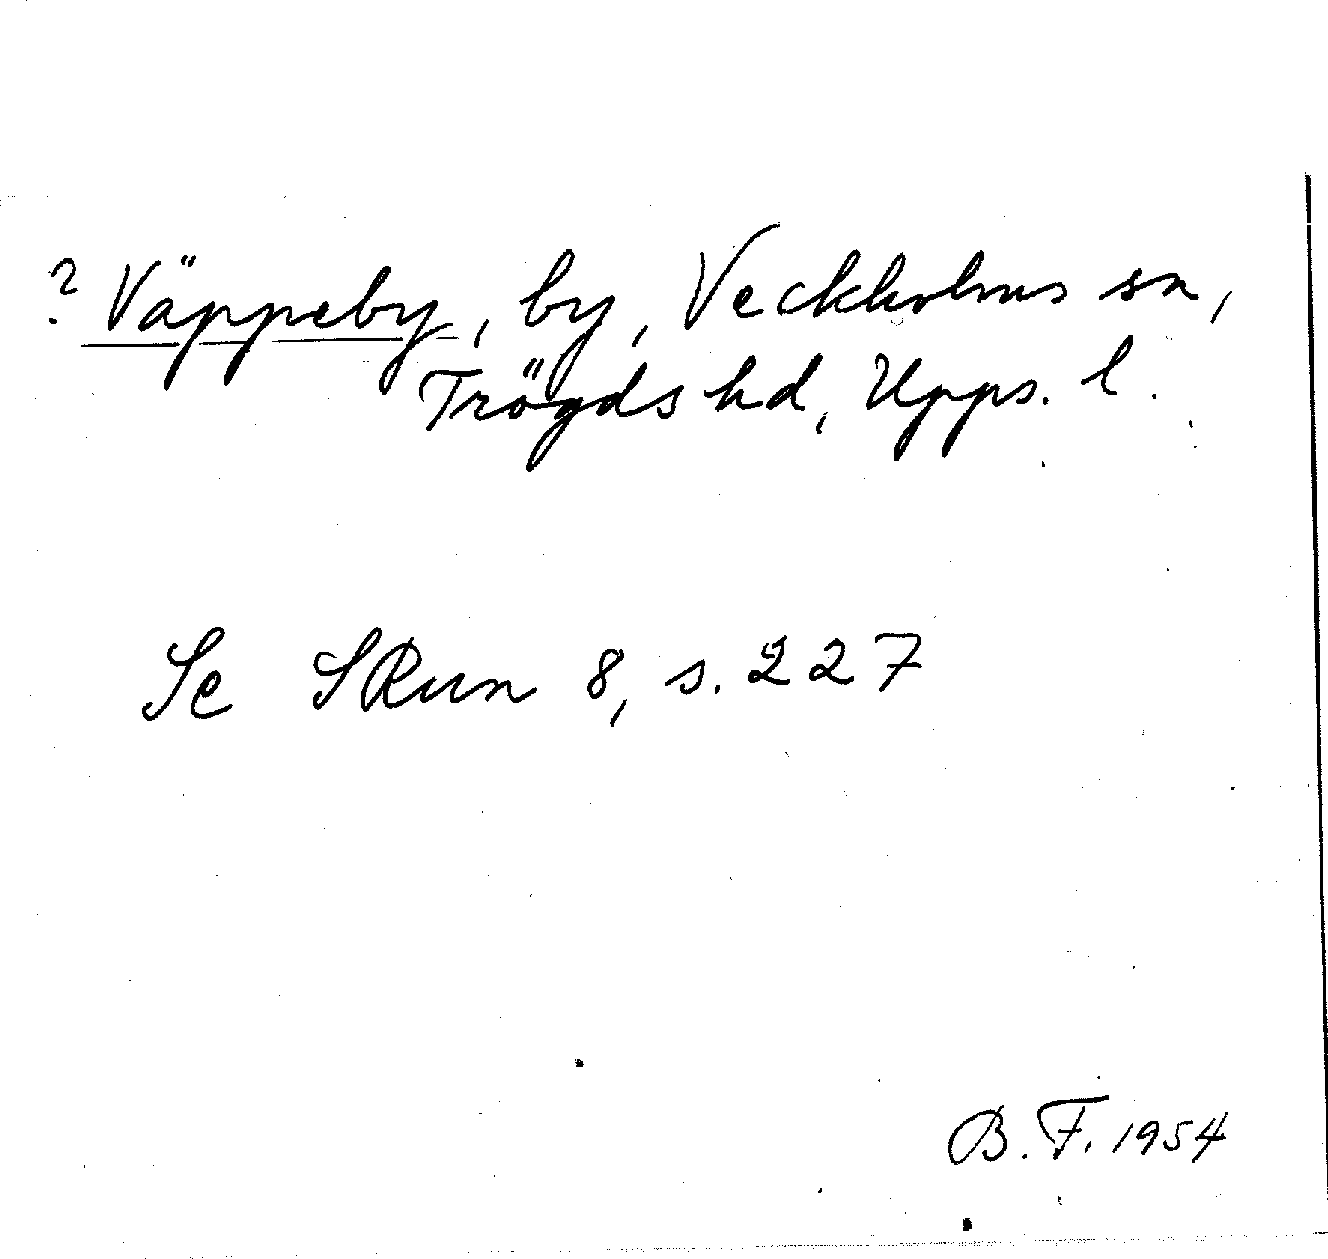 ? Väppeby, by, Veckholms sn,
Trögds hd, Upps. l.
Se SRun 8, s. 227
B. F. 1954